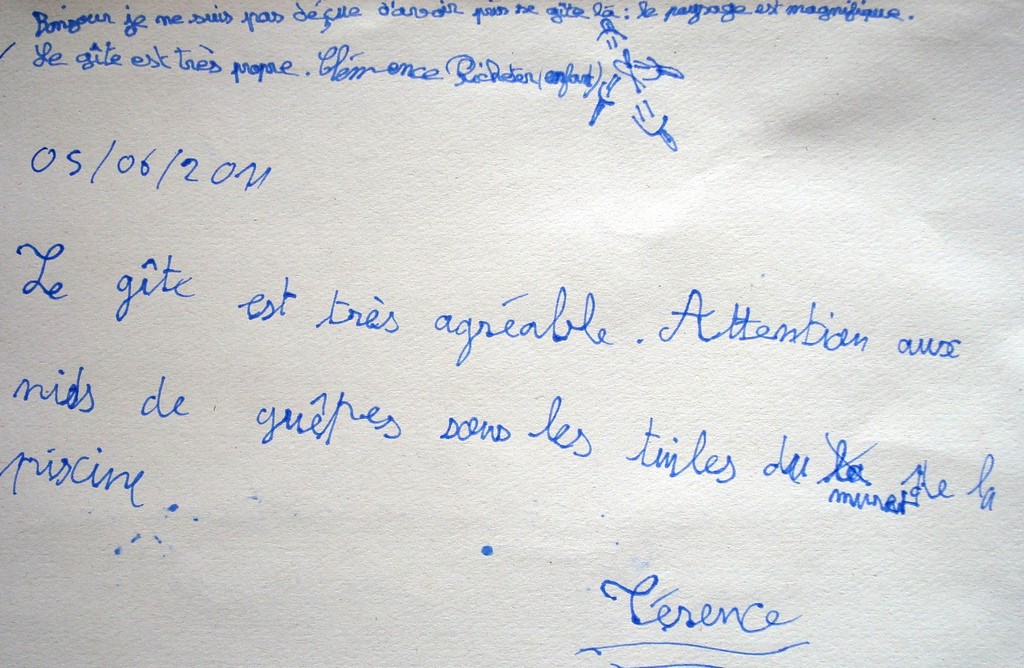 Bonjour je ne suis pas déçue d'avoir pris se gîte là : le paysage est magnifique.
Le gîte est très propre. Clémence Richeter (enfant)
05/06/2011
Le gîte est très agréable. Attention aux
nids de guêpes sous les tuiles du muret de la
piscine.
Térence